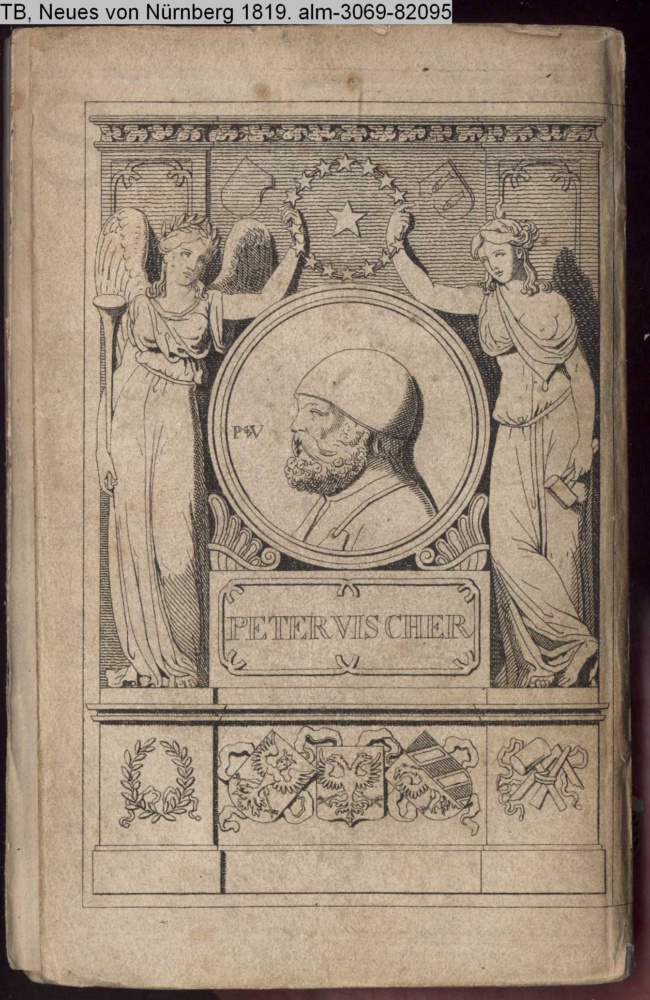 TB, Neues von Nürnberg 1819. alm-3069-82095
PV
PETER VISCHER